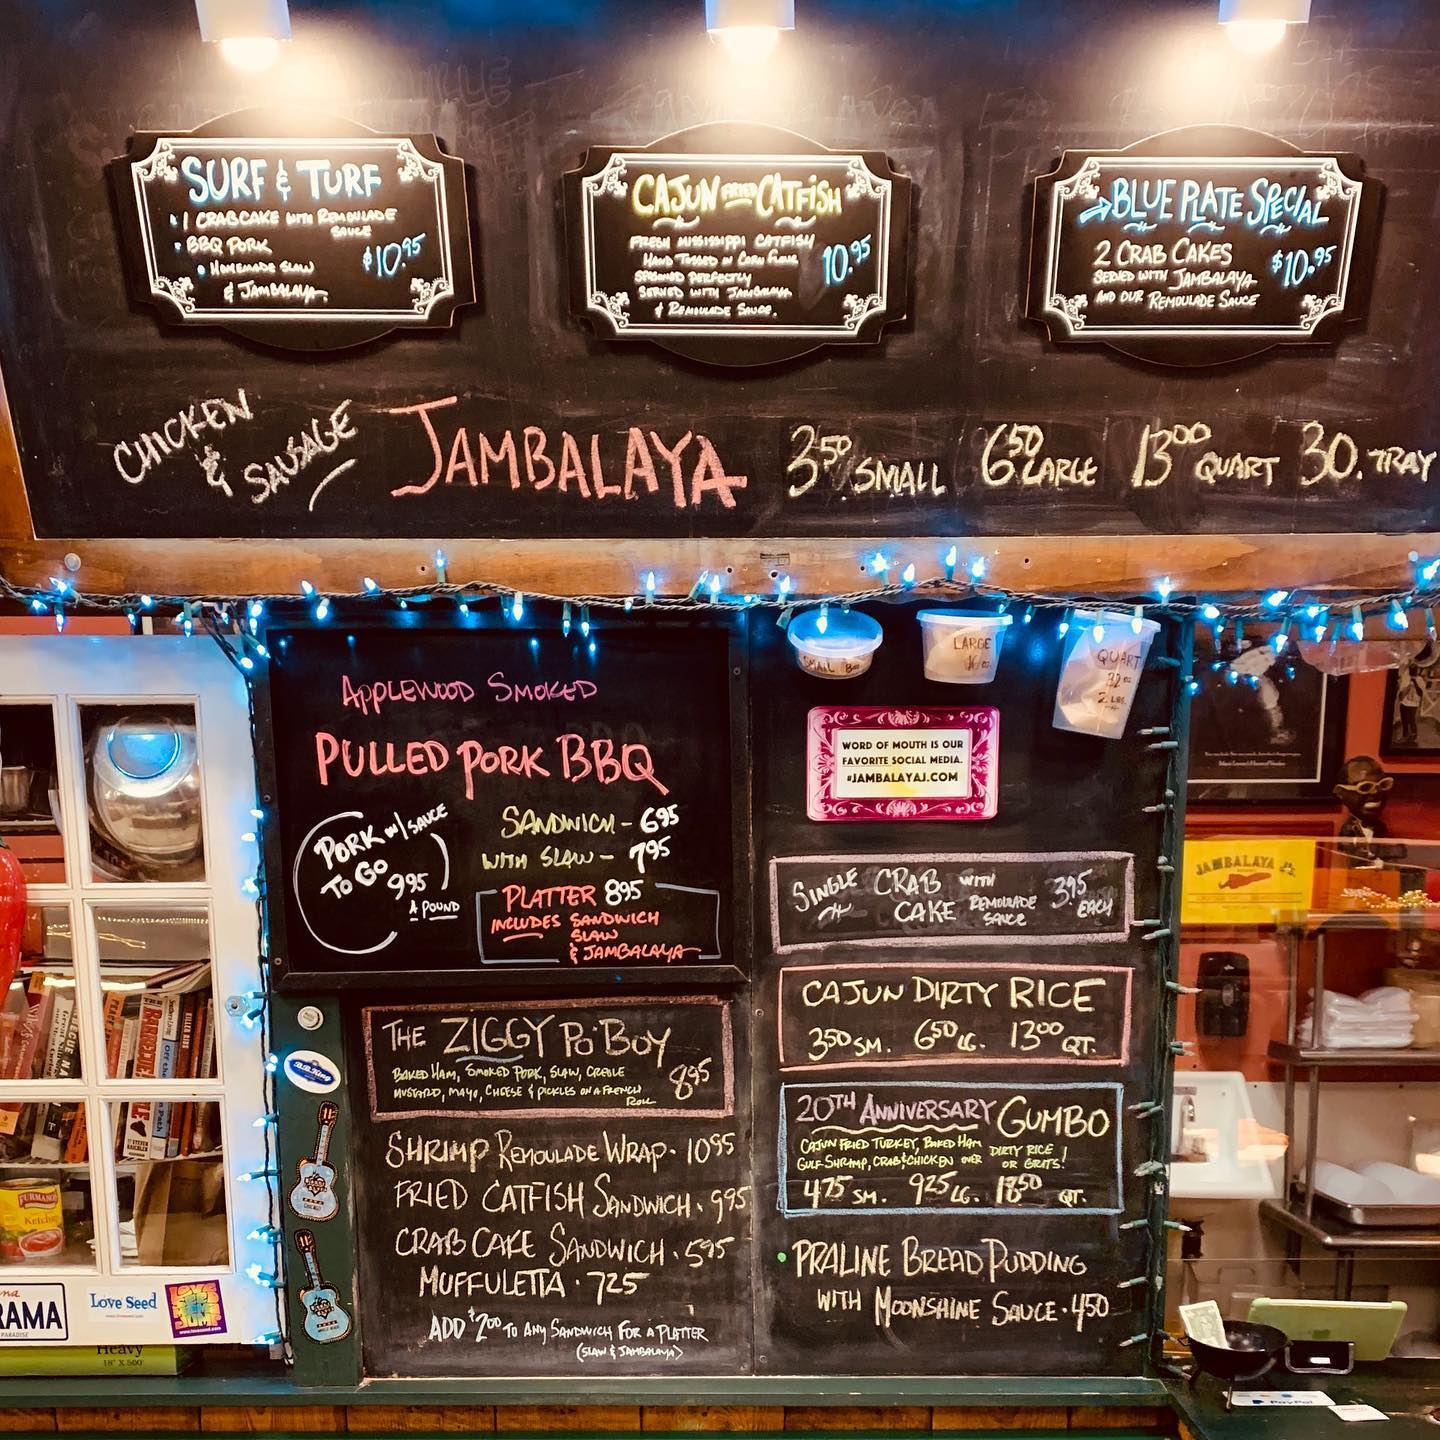 SURF & TURF
1 CRABCAKE WITH REMOULADE
SAUCE
BBQ PORK
HOMEMADE SLAW
& JAMBALAYA
$10.95
CAJUN FRIED CATFISH
FRESH MISSISSIPPI CATFISH
HAND TOSSED IN CORN FLOUR
SEASONED PERFECTLY
SERVED WITH JAMBALAYA
& REMOULADE SAUCE.
10.95
BLUE PLATE SPECIAL
2 CRAB CAKES
SERVED WITH JAMBALAYA
AND OUR REMOULADE SAUCE
$10.95
CHICKEN
&
SAUSAGE
JAMBALAYA
3.50 SMALL 6.50 LARGE 13.00 QUART 30. TRAY
APPLEWOOD SMOKED
PULLED PORK BBQ
PORK W/ SAUCE
TO GO
9.95
A POUND
SANDWICH - 6.95
WITH SLAW - 7.95
PLATTER 8.95
INCLUDES SANDWICH
SLAW
& JAMBALAYA
THE ZIGGY PO'BOY
BAKED HAM, SMOKED PORK, SLAW, CREOLE
MUSTARD, MAYO, CHEESE & PICKLES ON A FRENCH
ROLL
8.95
SHRIMP REMOULADE WRAP · 10.95
FRIED CATFISH SANDWICH · 9.95
CRAB CAKE SANDWICH · 5.95
MUFFULETTA · 7.25
ADD $2.00 TO ANY SANDWICH FOR A PLATTER
(SLAW & JAMBALAYA)
SMALL 8oz
LARGE
16 oz
QUART
32 oz
2 LBS.
WORD OF MOUTH IS OUR
FAVORITE SOCIAL MEDIA.
#JAMBALAYAJ.COM
SINGLE CRAB CAKE WITH REMOULADE SAUCE 3.95 EACH
CAJUN DIRTY RICE
3.50 SM. 6.50 LG. 13.00 QT.
20TH ANNIVERSARY GUMBO
CAJUN FRIED TURKEY, BAKED HAM
GULF SHRIMP, CRAB & CHICKEN OVER DIRTY RICE
OR GRITS!
4.75 SM. 9.25 LG. 18.50 QT.
PRALINE BREAD PUDDING
WITH MOONSHINE SAUCE · 4.50
JAMBALAYA J's.
B.B. King
FURMANO'S
Ketchup
RAMA
PARADISE
Love Seed
Heavy
18" X 500'
PayPal